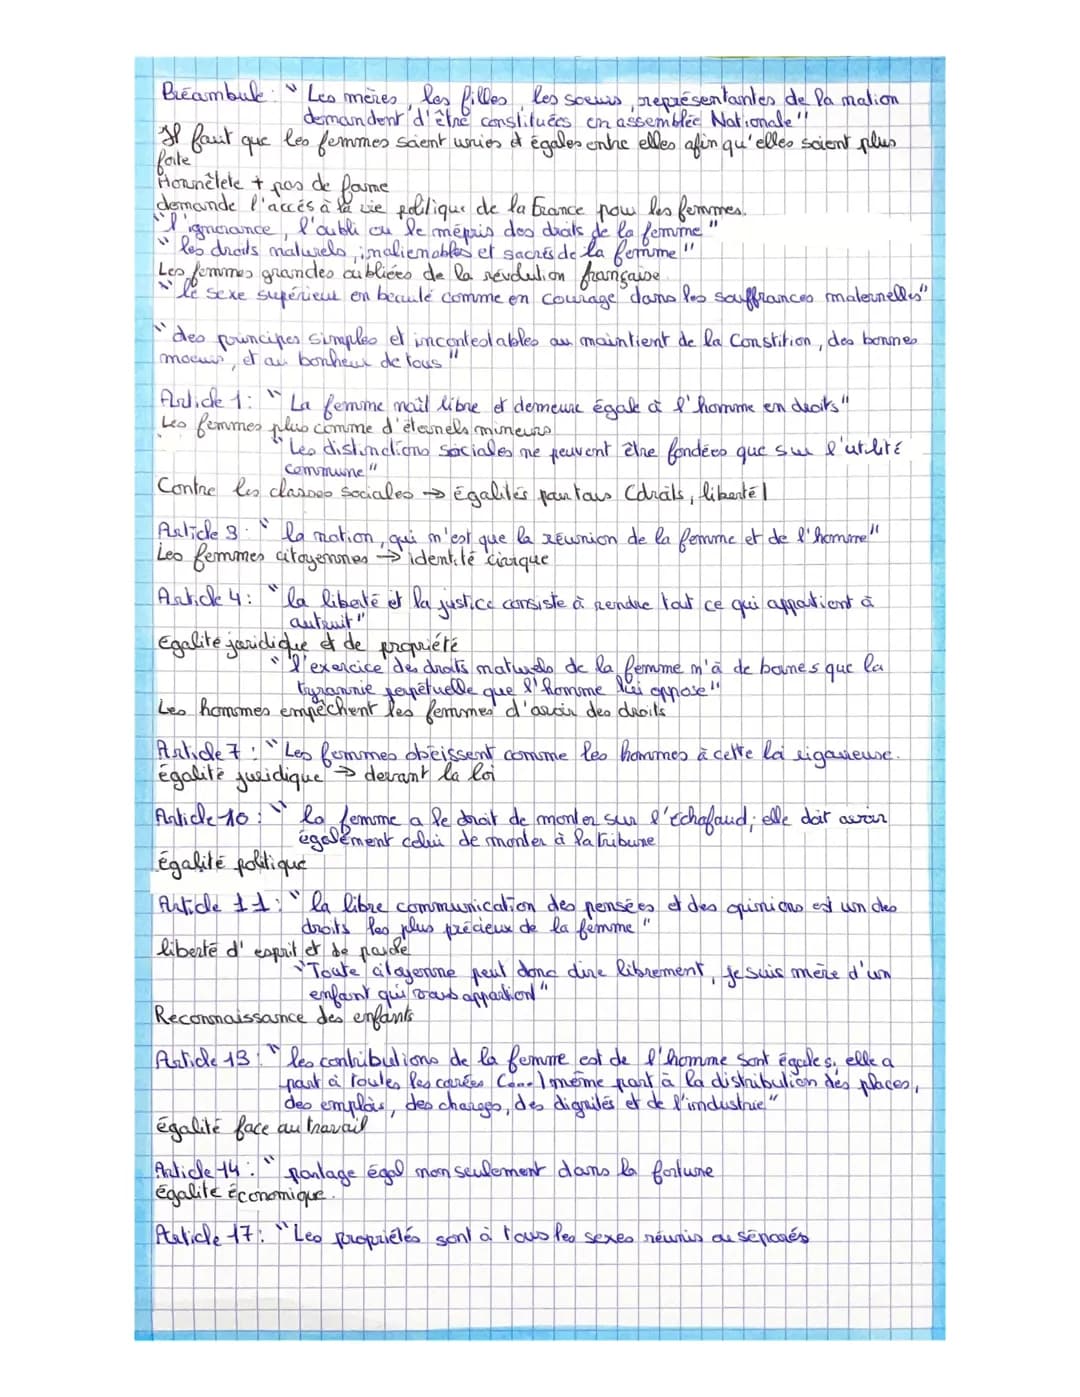 Préambule : " Les mères, les filles, les soeurs, représentantes de la nation
demandent d'être constituées en assemblée Nationale"
Il faut que les femmes soient unies et égales entre elles afin qu'elles soient plus
forte
Honnêtete + pas de forme
demande l'accès à la vie politique de la France pour les femmes.
"l'ignorance, l'oubli ou le mépris des droits de la femme"
" les droits naturels, inaliénables et sacrés de la femme"
Les femmes grandes oubliées de la révolution française
" le sexe supérieur en beauté comme en courage dans les souffrances maternelles"
" des principes simples et incontestables au maintient de la Constition, des bonnes
moeurs, et au bonheur de tous"
Article 1 : " La femme naît libre et demeure égale à l'homme en droits"
Les femmes plus comme d'éternels mineurs
"Les distinctions sociales ne peuvent être fondées que sur l'utilité
commune"
Contre les classes sociales → égalités pour tous (droits, liberté)
Article 3 : " la nation, qui n'est que la réunion de la femme et de l'homme"
Les femmes citoyennes → identité civique
Article 4 : " la liberté et la justice consiste à rendre tout ce qui appartient à
autruit"
Egalité juridique et de propriété
" l'exercice des droits naturels de la femme n'à de bornes que la
tyrannie perpétuelle que l'homme lui oppose"
Les hommes empêchent les femmes d'avoir des droits
Article 7 : "Les femmes obéissent comme les hommes à cette loi rigoureuse.
égalité juridique → devant la loi
Article 10 : " la femme a le droit de monter sur l'échafaud ; elle doit avoir
également celui de monter à la tribune
égalité politique
Article 11 : " la libre communication des pensées et des opinions est un des
droits les plus précieux de la femme"
liberté d'esprit et de parole
"Toute citoyenne peut donc dire librement, je suis mère d'un
enfant qui vous appartient"
Reconnaissance des enfants
Article 13 : " les contributions de la femme est de l'homme sont égales, elle a
part à toutes les corvées (...) même part à la distribution des places,
des emplois, des charges, des dignités et de l'industrie"
égalité face au travail
Article 14 : " partage égal non seulement dans la fortune
égalité économique.
Article 17 : "Les propriétés sont à tous les sexes réunis ou séparés